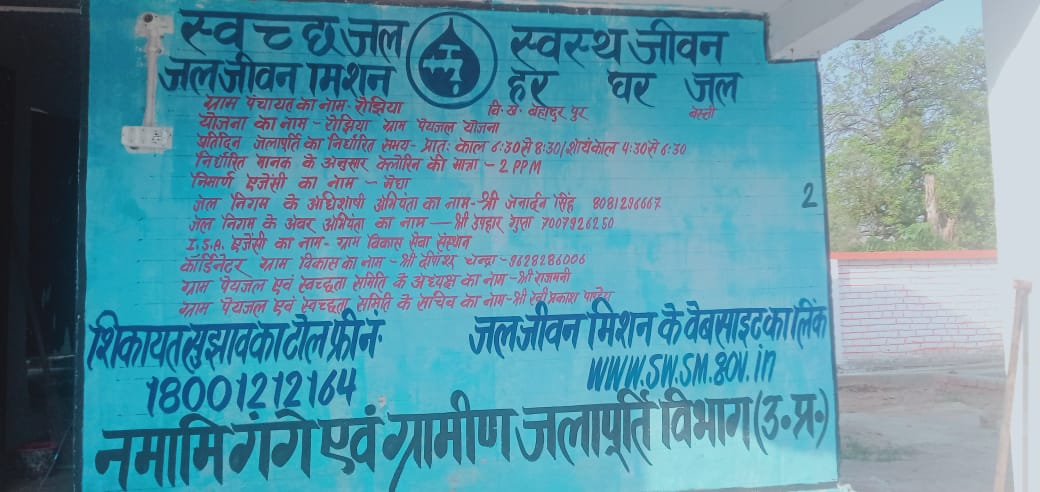 स्वच्छ जल स्वस्थ जीवन
जल जीवन मिशन हर घर जल
ग्राम पंचायत का नाम- रोझिया वि. ख. बहादुर पुर बस्ती
योजना का नाम - रोझिया ग्राम पेयजल योजना
प्रतिदिन जलापूर्ति का निर्धारित समय- प्रातः काल 6:30 से 8:30/शायंकाल 4:30 से 6:30
निर्धारित मानक के अनुसार क्लोरिन की मात्रा - 2 PPM
निमार्ण एजेंसी का नाम - मेघा
2
जल निगम के अधिशाषी अभियंता का नाम- श्री जनार्दन सिंह 8081296667
जल निगम के अवर अभियंता का नाम — श्री उपहार गुप्ता 7007926250
I.S.A. एजेंसी का नाम- ग्राम विकास सेवा संस्थान
कॉर्डिनेटर ग्राम विकास का नाम - श्री चन्द्रा - 9628286006
ग्राम पेयजल एवं स्वच्छता समिति के अध्यक्ष का नाम - श्री राजमनी
ग्राम पेयजल एवं स्वच्छता समिति के सचिव का नाम- श्री रवी प्रकाश पाण्डेय
शिकायत सुझाव का टोल फ्री नं. जल जीवन मिशन के वेबसाइट का लिंक
18001212164 WWW.SW.SM.gov.in
नमामि गंगे एवं ग्रामीण जलापूर्ति विभाग (उ. प्र.)